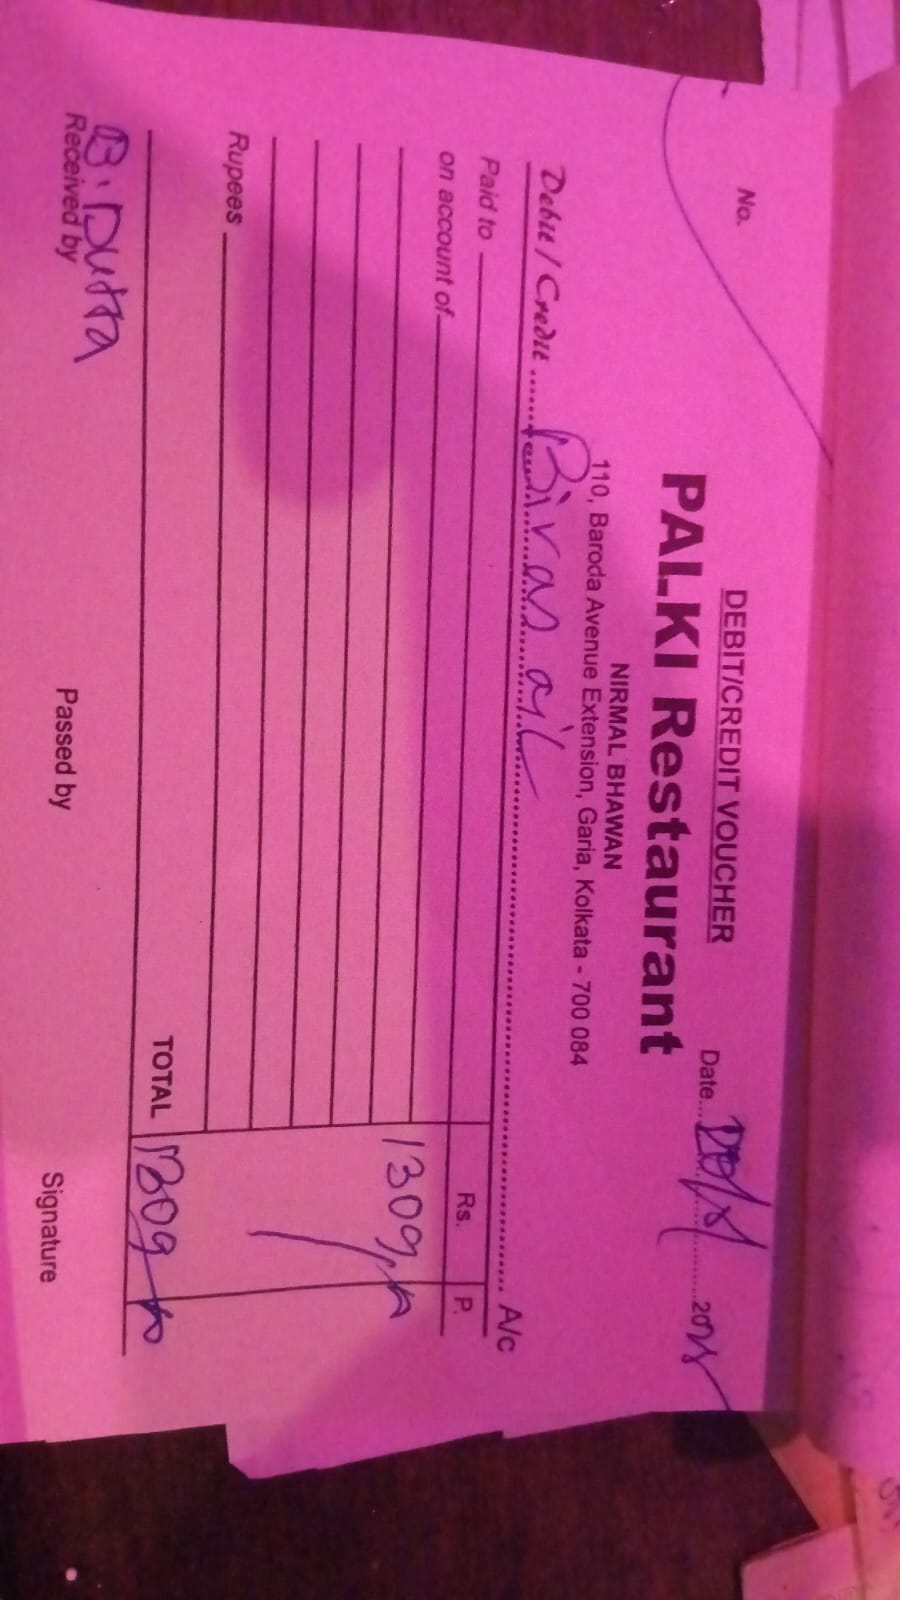 DEBIT/CREDIT VOUCHER
No. Date
PALKI Restaurant
NIRMAL BHAWAN
110, Baroda Avenue Extension, Garia, Kolkata - 700 084
Debit / Credit Bivas A/c
Paid to Rs. P.
on account of
1309
Rupees
TOTAL 1309
B. Dutta
Received by Passed by Signature